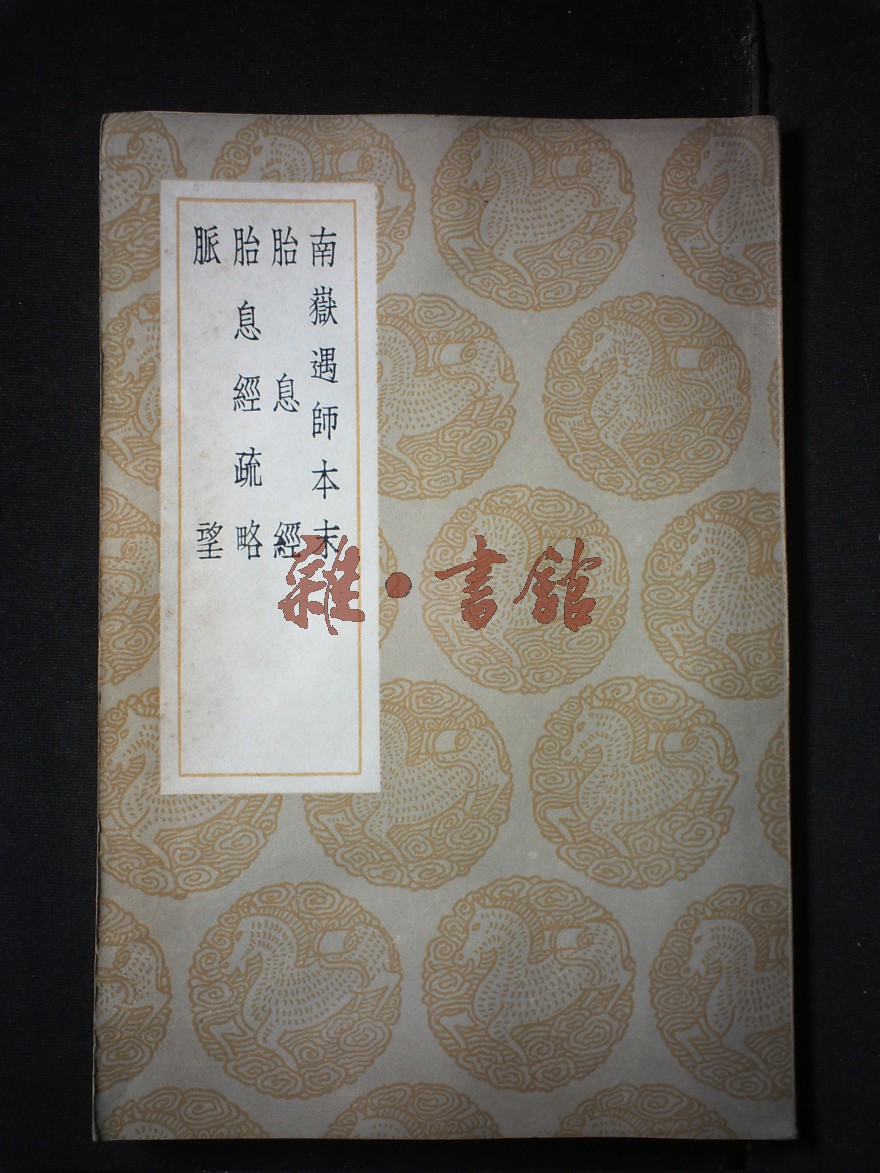 南嶽遇師本末
胎息經
胎息經疏略
脈望
雜·書館